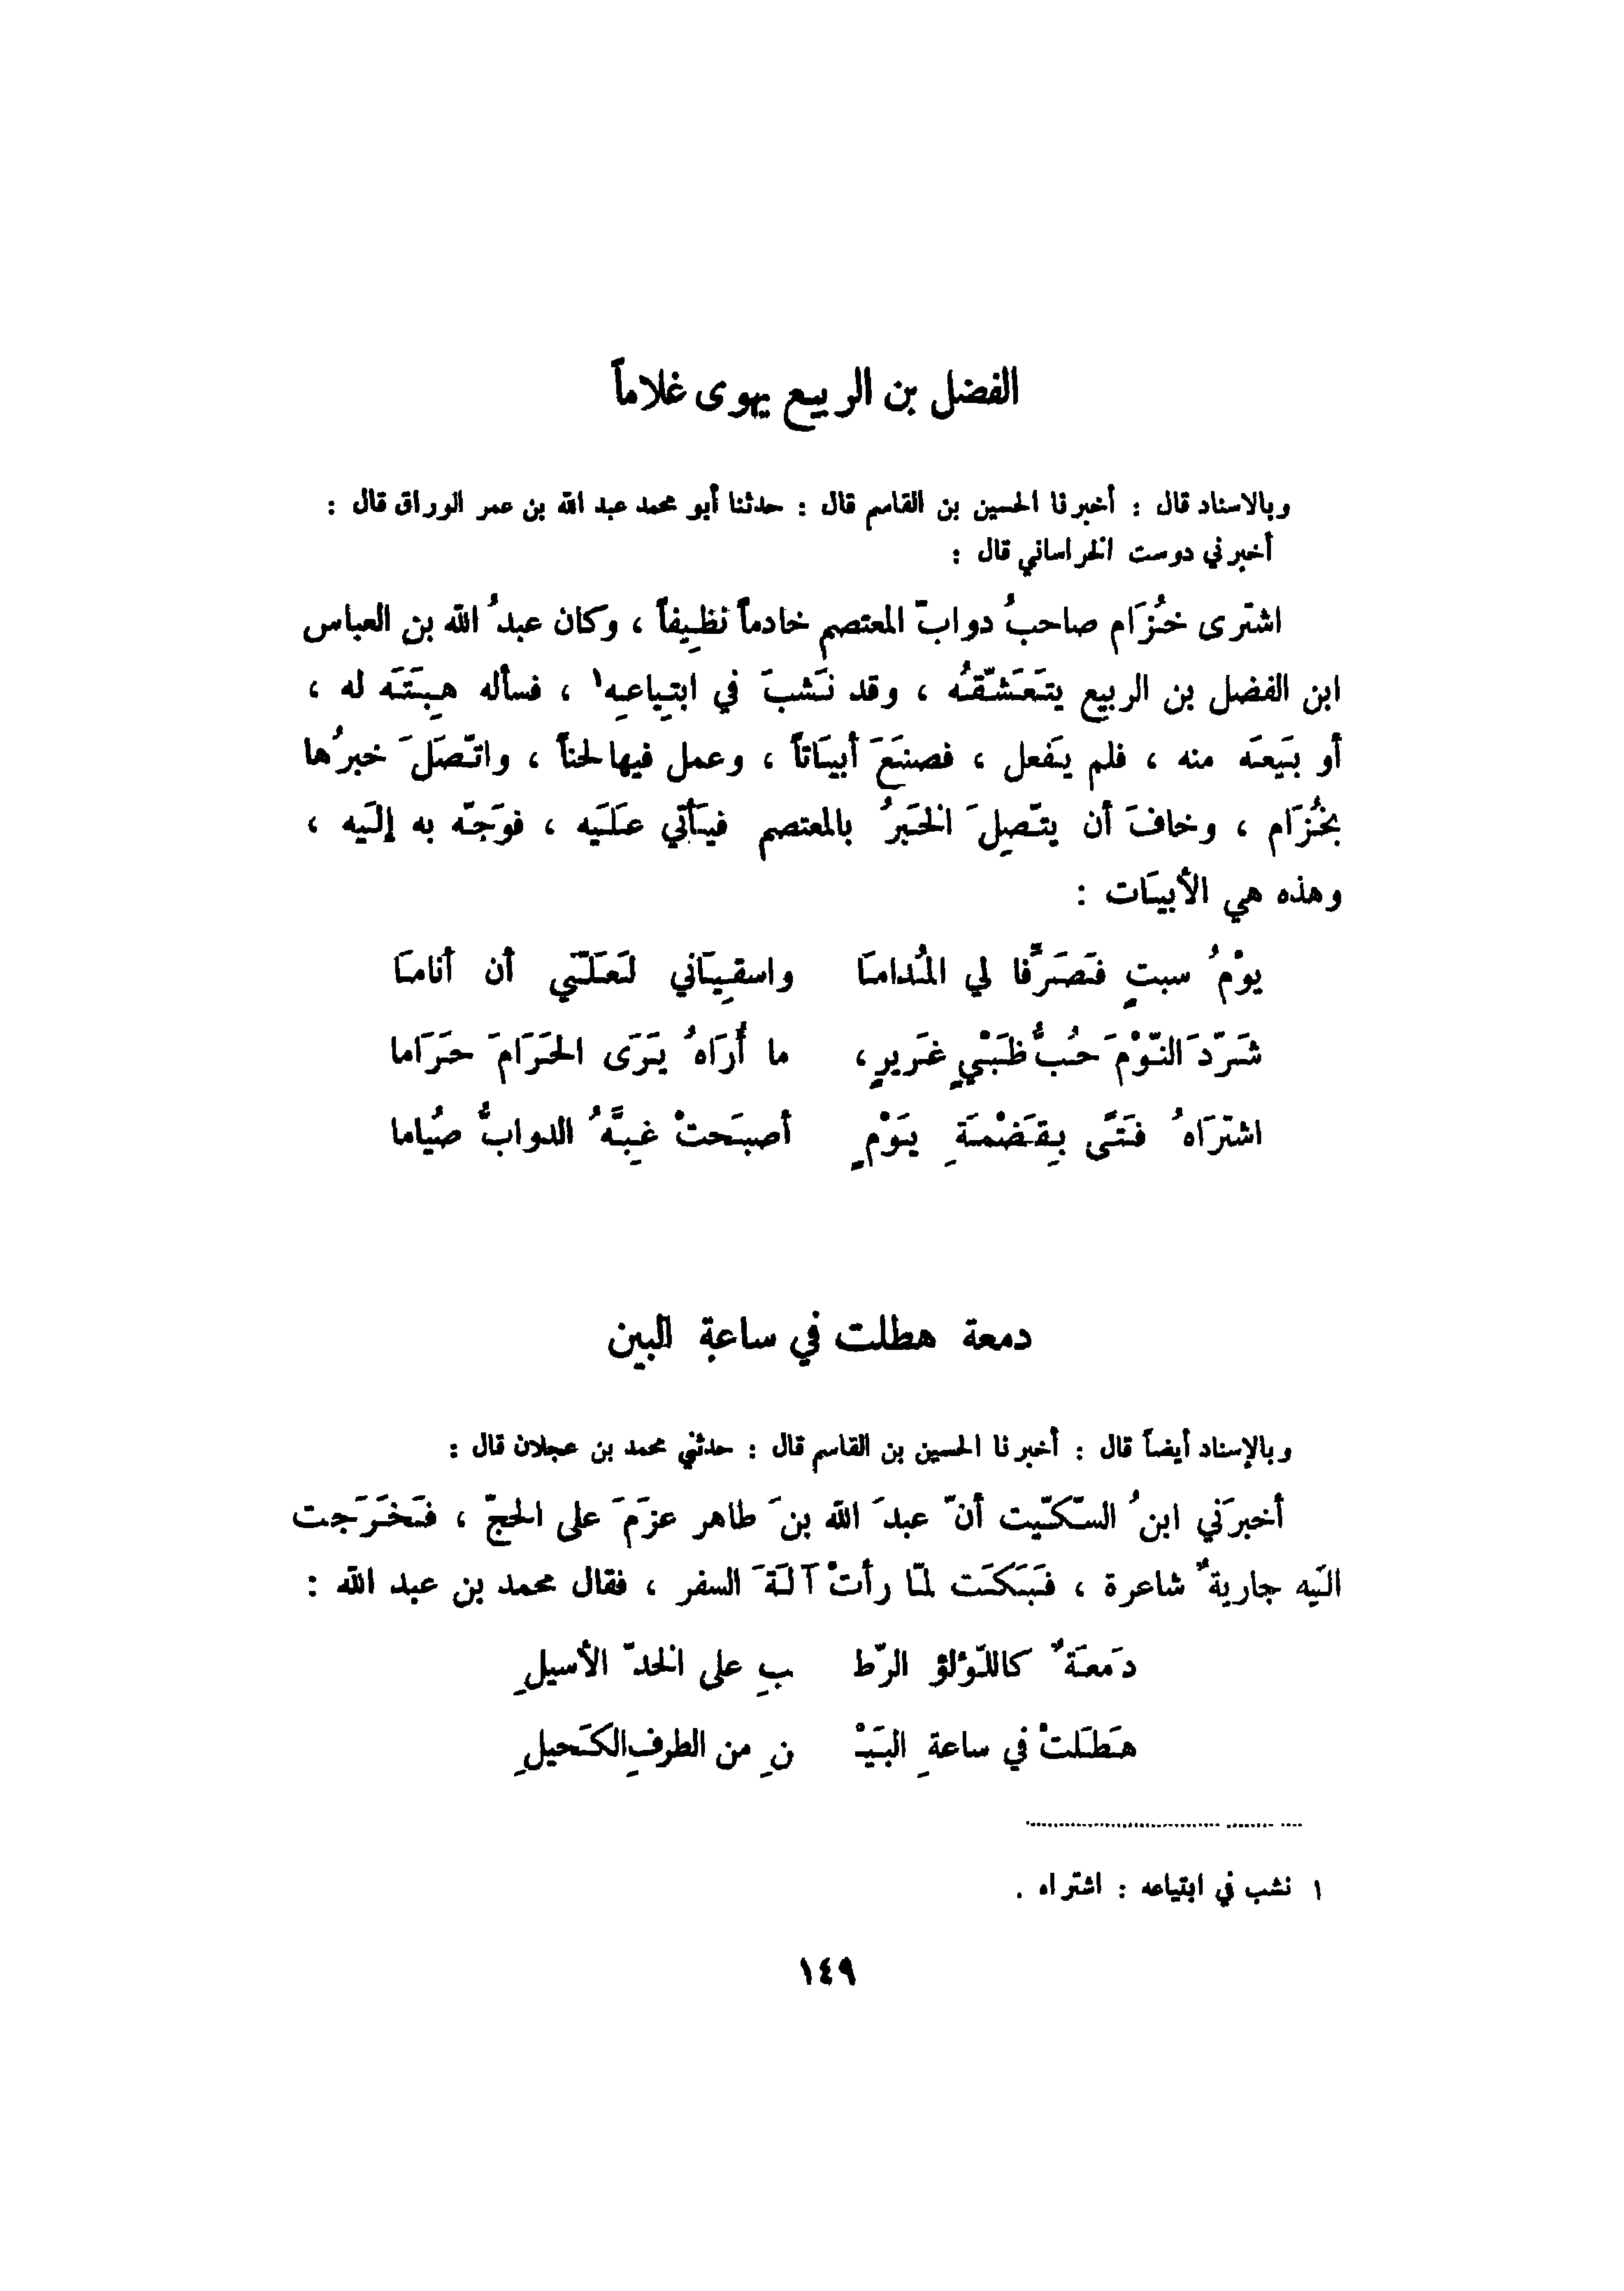 الفضل بن الربيع يهوى غلاماً
وبالاسناد قال : أخبرنا الحسين بن القاسم قال : حدثنا أبو محمد عبد الله بن عمر الوراق قال :
أخبرني دوست الخراساني قال :
اشترى خُزَام صاحبُ دوابّ المعتصم خادماً نظِيفاً ، وكان عبدُ الله بن العباس
ابن الفضل بن الربيع يتَعَشّقُه ، وقد نَشبَ في ابتِياعِه١ ، فسأله هِبَتَه له ،
أو بَيعَه منه ، فلم يَفعل ، فصنَعَ أبيَاتاً ، وعمل فيها لحناً ، واتّصَلَ خبرُها
بخُزَام ، وخافَ أن يتّصِلَ الخَبرُ بالمعتصم فيَأتي عَلَيه ، فوَجّه به إلَيه ،
وهذه هي الأبيَات :
يوْمُ سبتٍ فَصَرِّفا لي المُدامَا    واسقِيَاني لَعَلّني أن أنامَا
شَرّدَ النّوْمَ حُبُّ ظَبْيٍ غَريرٍ ،    ما أُرَاهُ يَرَى الحَرَامَ حَرَاما
اشتَرَاهُ فَتًى بِقَضْمَةِ يَوْمٍ    أصبَحتْ غِبَّهُ الدوابُّ صُياما
دمعة هطلت في ساعة البين
وبالإسناد أيضاً قال : أخبرنا الحسين بن القاسم قال : حدثني محمد بن عجلان قال :
أخبرَني ابنُ السّكّيت أنّ عبدَ الله بنَ طاهر عزَمَ على الحجّ ، فَخَرَجت
اليَه جاريةٌ شاعرة ، فَبَكَت لمّا رأتْ آلَةَ السفر ، فقال محمد بن عبد الله :
دَمعَةٌ كاللّؤلؤ الرّط    بِ على الخدّ الأسيلِ
هَطَلَتْ في ساعةِ البَيْـ    نِ من الطرفِ الكَحيلِ
١ نشب في ابتياعه : اشتراه .
١٤٩